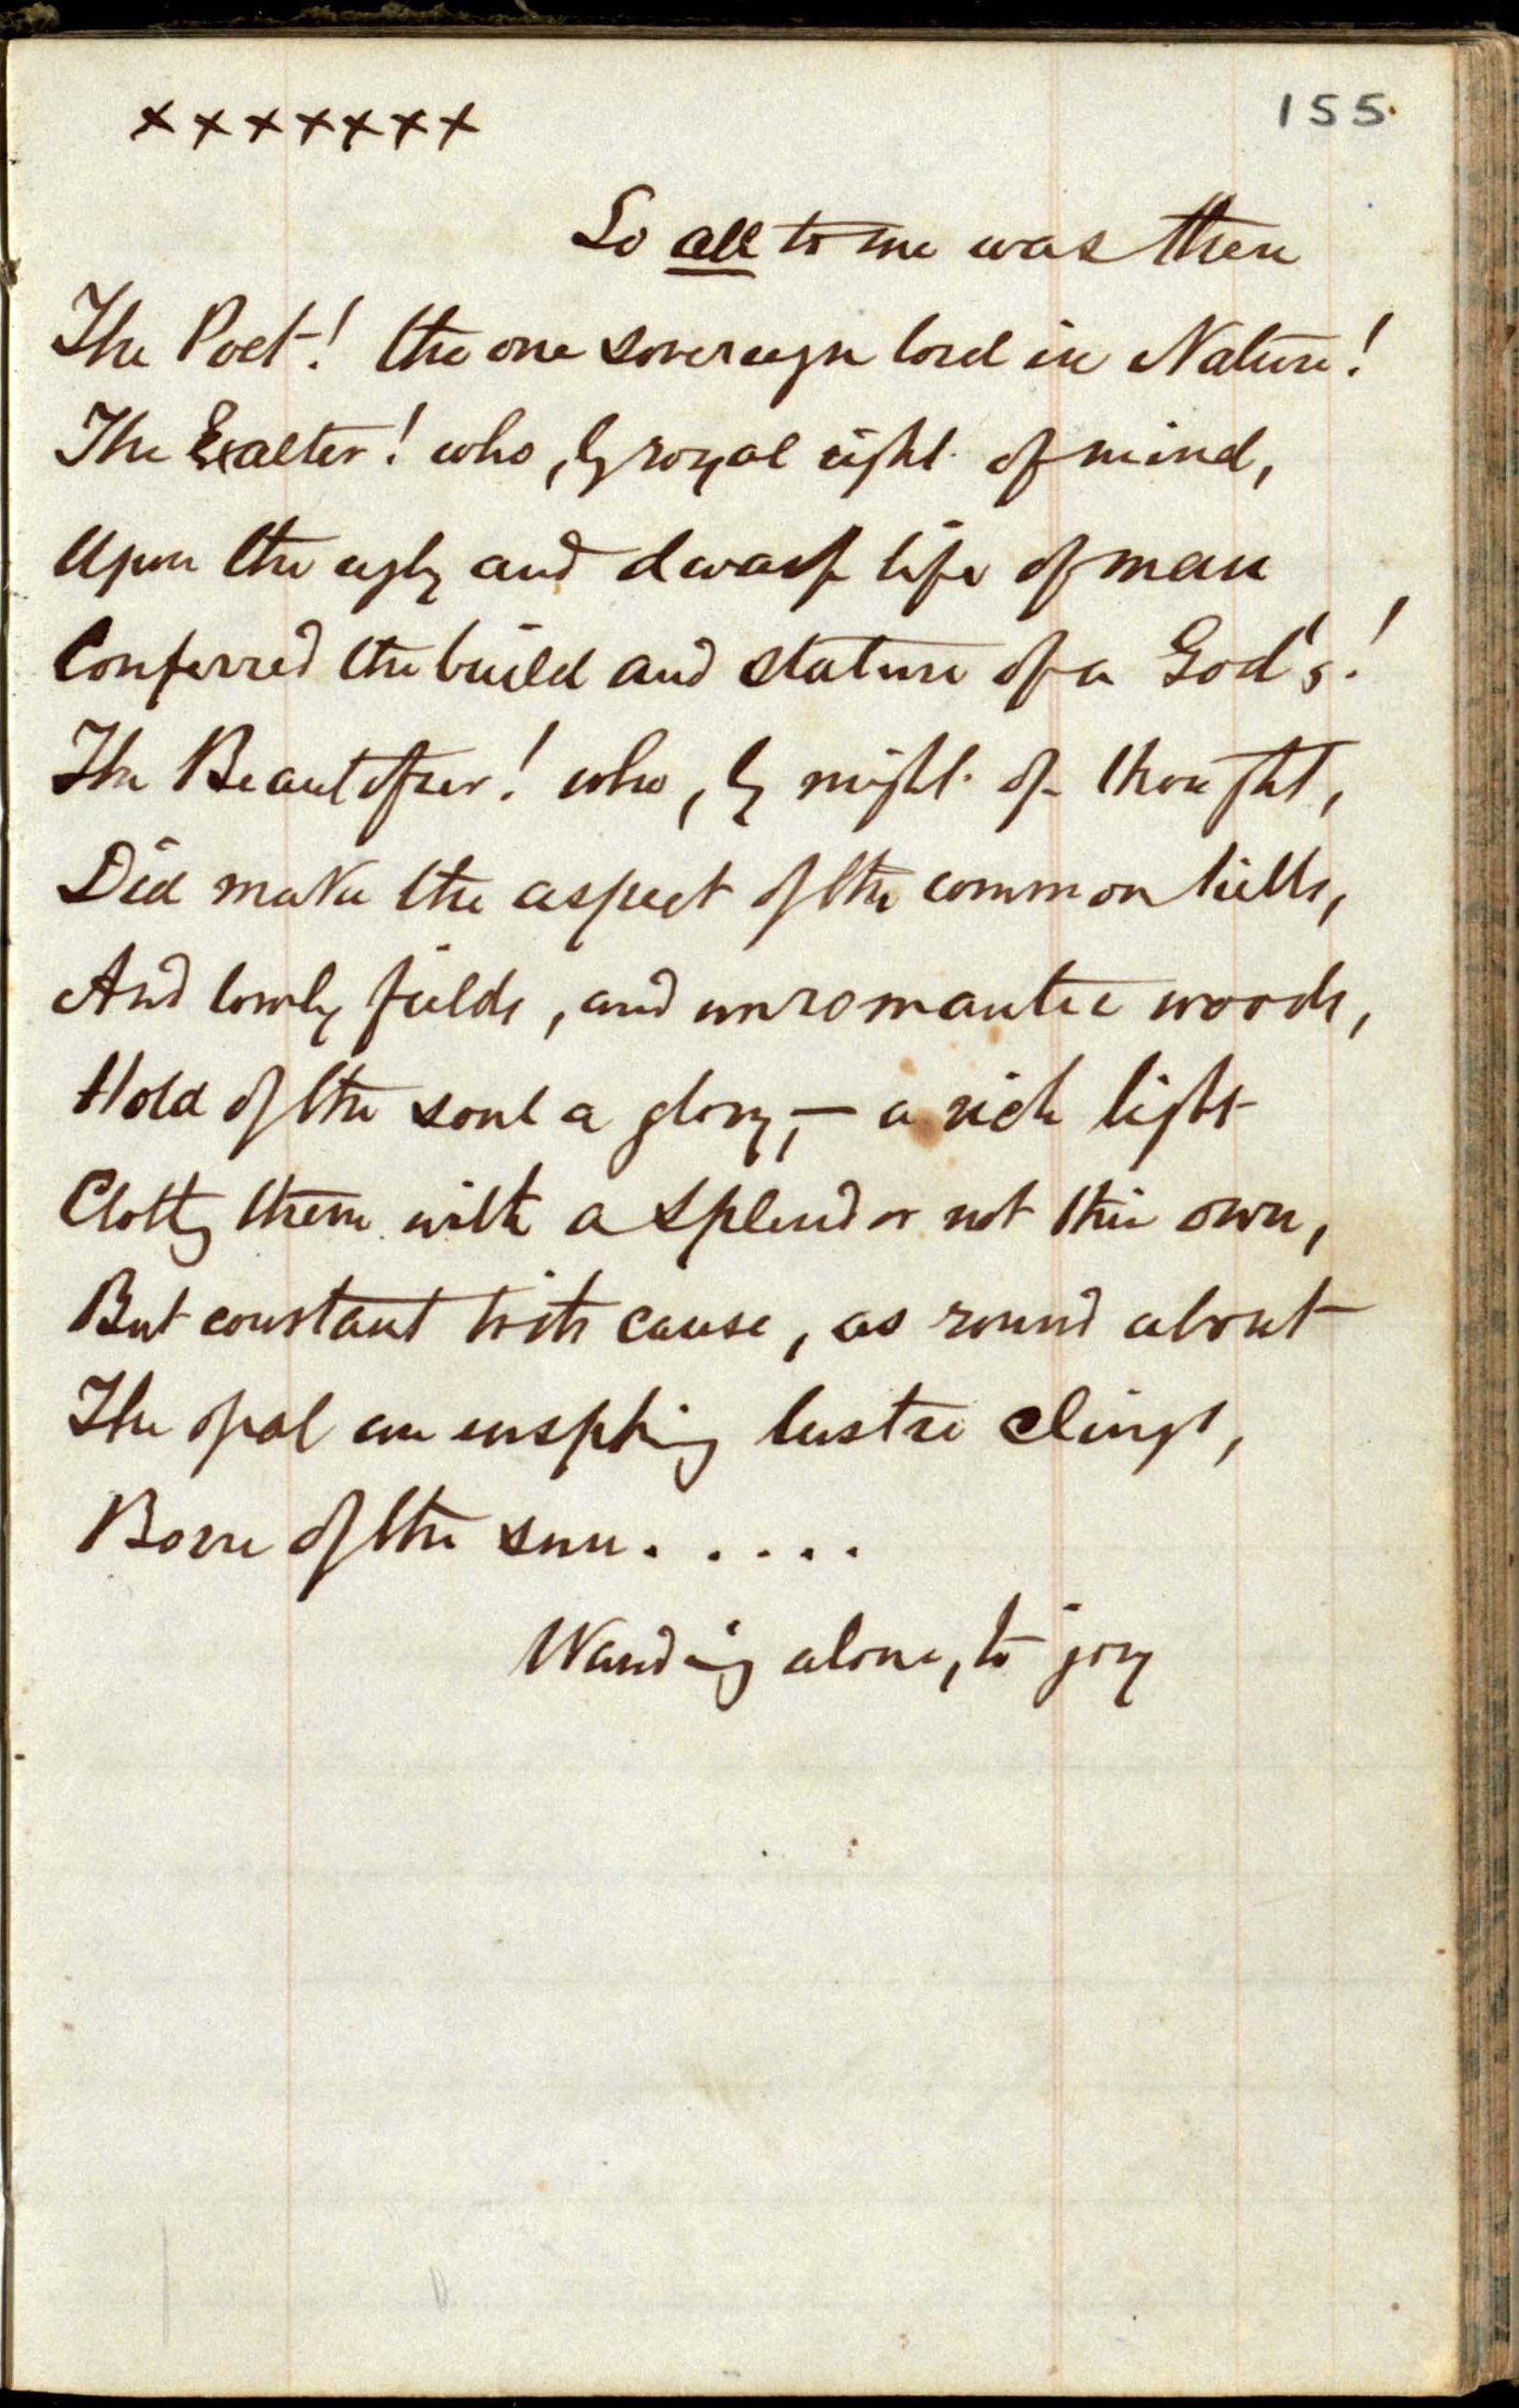 x x x x x x x
155.
So all to me was there
The Poet! the one sovereign lord in Nature!
The Exalter! who, by royal right of mind,
Upon the ugly and dwarf life of man
Conferred the build and stature of a God's!
The Beautifier! who, by might of thought,
Did make the aspect of the common hills,
And lowly fields, and unromantic woods,
Hold of the soul a glory,— a rich light
Clothg them with a splendor not their own,
But constant to its cause, as round about
The opal an ensphing lustre clings,
Borne of the sun. . . . .
Wanding alone, to joy